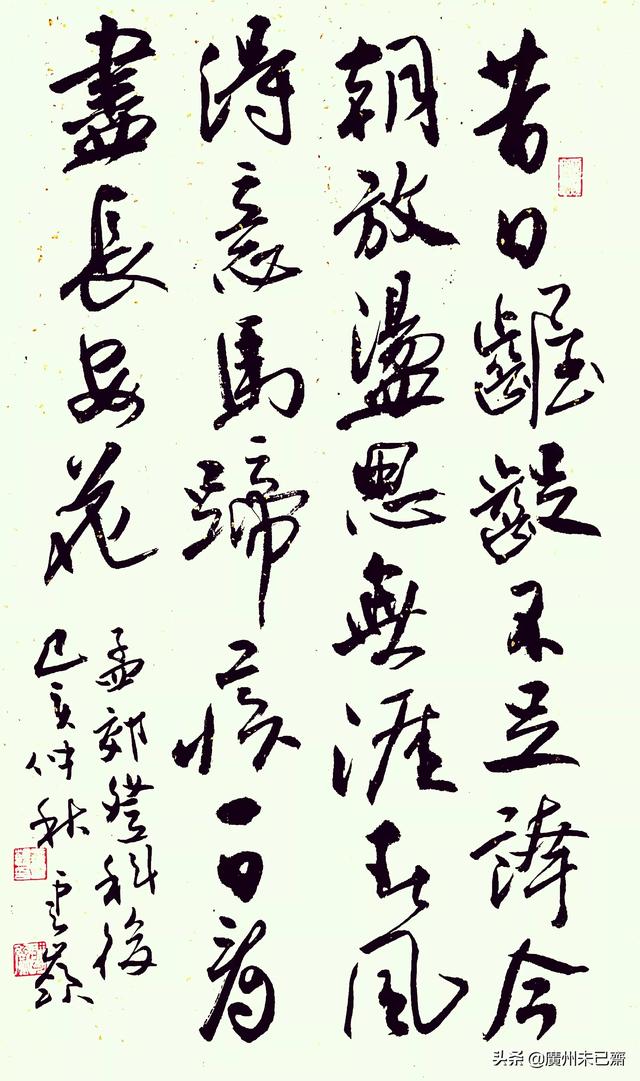 昔日齷齪不足誇今
朝放盪思無涯春風
得意馬蹄疾一日看
盡長安花
孟郊登科後
己亥仲秋雲嶺
头条 @廣州未已齋